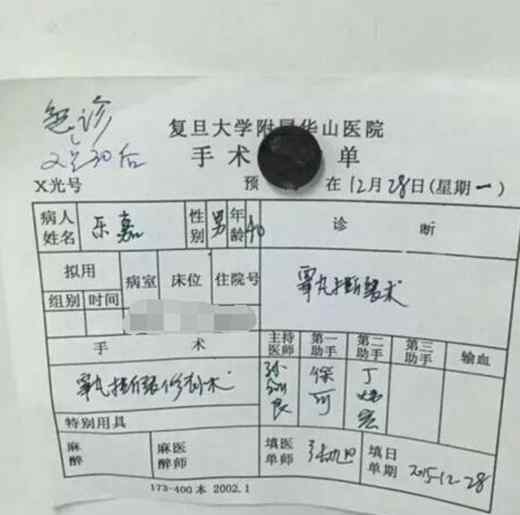 急诊
复旦大学附属华山医院
2:30后
手术 单
X光号 预 在 12月28日(星期一)
病人姓名 乐嘉 性别 男 年龄 40 诊 断
拟用 病室 床位 住院号
组别 时间
手 术 主持医师 第一助手 第二助手 第三助手 输血
睾丸扭断缝修补术
特别用具
麻醉 麻医醉师 填医单师 填日单期 2015-12-28
173-400本 2002.1